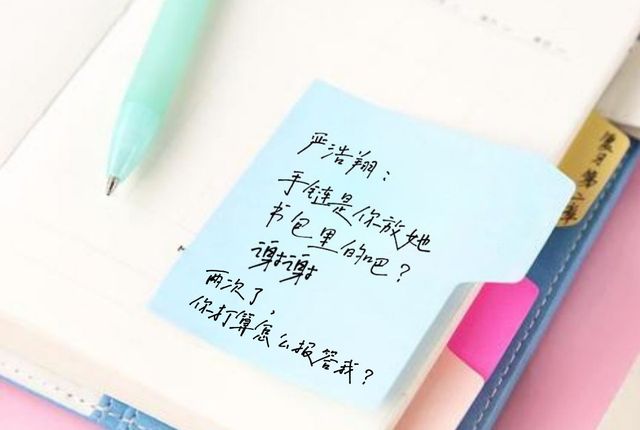 严浩翔：
手链是你放她
书包里的吧？
谢谢
两次了，
你打算怎么报答我？